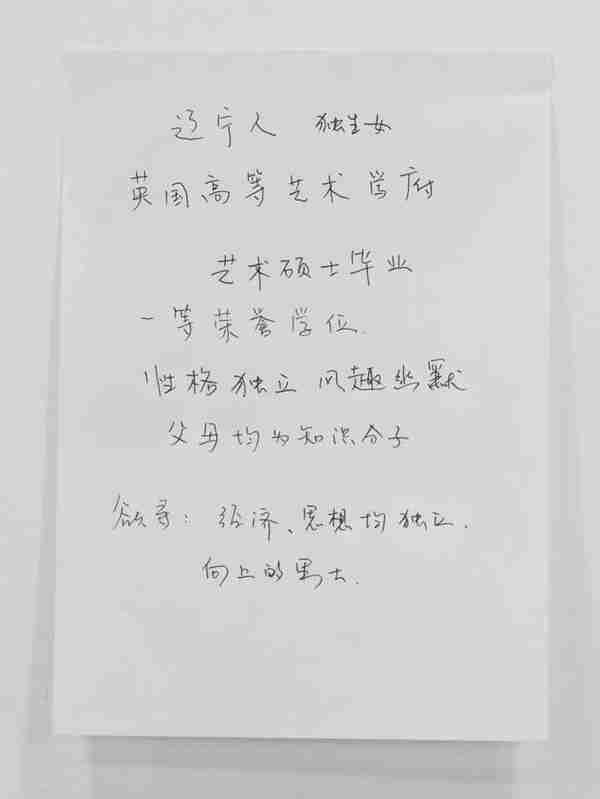 辽宁人 独生女
英国高等艺术学府
艺术硕士毕业
一等荣誉学位.
性格独立 风趣幽默
父母均为知识分子
欲寻：经济、思想均独立.
向上的男士.